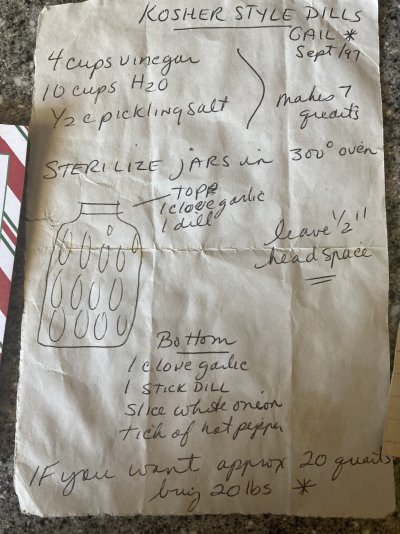 KOSHER STYLE DILLS
GAIL *
Sept/97
4 cups vinegar
10 cups H2O
1/2 c pickling salt
makes 7
quarts
STERILIZE JARS in 300° oven
TOPP
1 clove garlic
1 dill
leave 1/2"
head space
Bottom
1 clove garlic
1 STICK DILL
Slice white onion
tich of hot pepper
IF you want approx 20 quarts
buy 20 lbs *